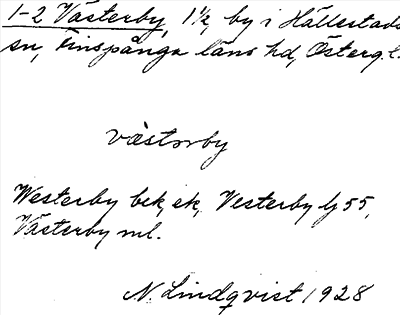 1-2 Västerby, 1 1/2, by i Hällestads
sn, Finspånga läns hd, Österg. l.
västərby
Westerby bek, ek, Vesterby lj 55,
Västerby ml.
N. Lindqvist 1928